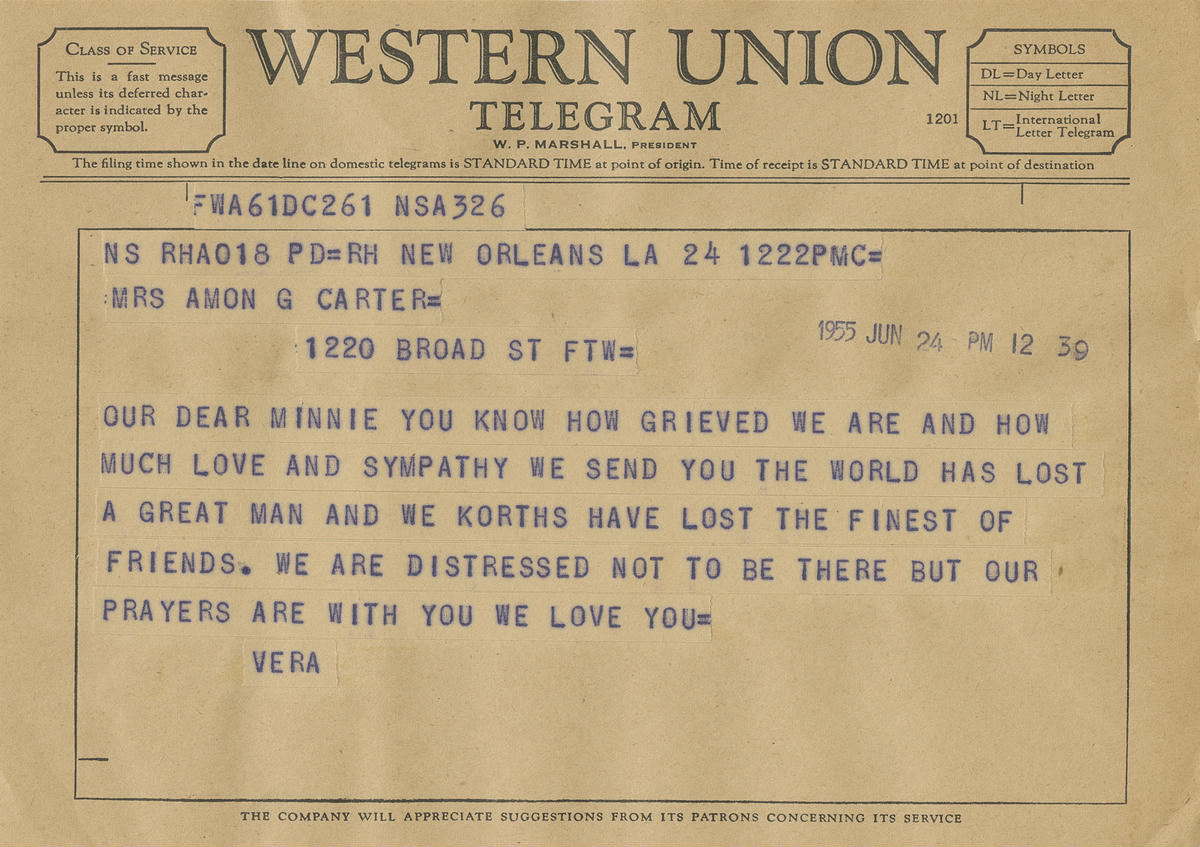 CLASS OF SERVICE
This is a fast message
unless its deferred char-
acter is indicated by the
proper symbol.
WESTERN UNION
TELEGRAM
W. P. MARSHALL, PRESIDENT
1201
SYMBOLS
DL=Day Letter
NL=Night Letter
LT=International
Letter Telegram
The filing time shown in the date line on domestic telegrams is STANDARD TIME at point of origin. Time of receipt is STANDARD TIME at point of destination
FWA61DC261 NSA326
NS RHA018 PD=RH NEW ORLEANS LA 24 1222PMC=
:MRS AMON G CARTER=
1955 JUN 24 PM 12 39
:1220 BROAD ST FTW=
OUR DEAR MINNIE YOU KNOW HOW GRIEVED WE ARE AND HOW
MUCH LOVE AND SYMPATHY WE SEND YOU THE WORLD HAS LOST
A GREAT MAN AND WE KORTHS HAVE LOST THE FINEST OF
FRIENDS. WE ARE DISTRESSED NOT TO BE THERE BUT OUR
PRAYERS ARE WITH YOU WE LOVE YOU=
VERA
THE COMPANY WILL APPRECIATE SUGGESTIONS FROM ITS PATRONS CONCERNING ITS SERVICE